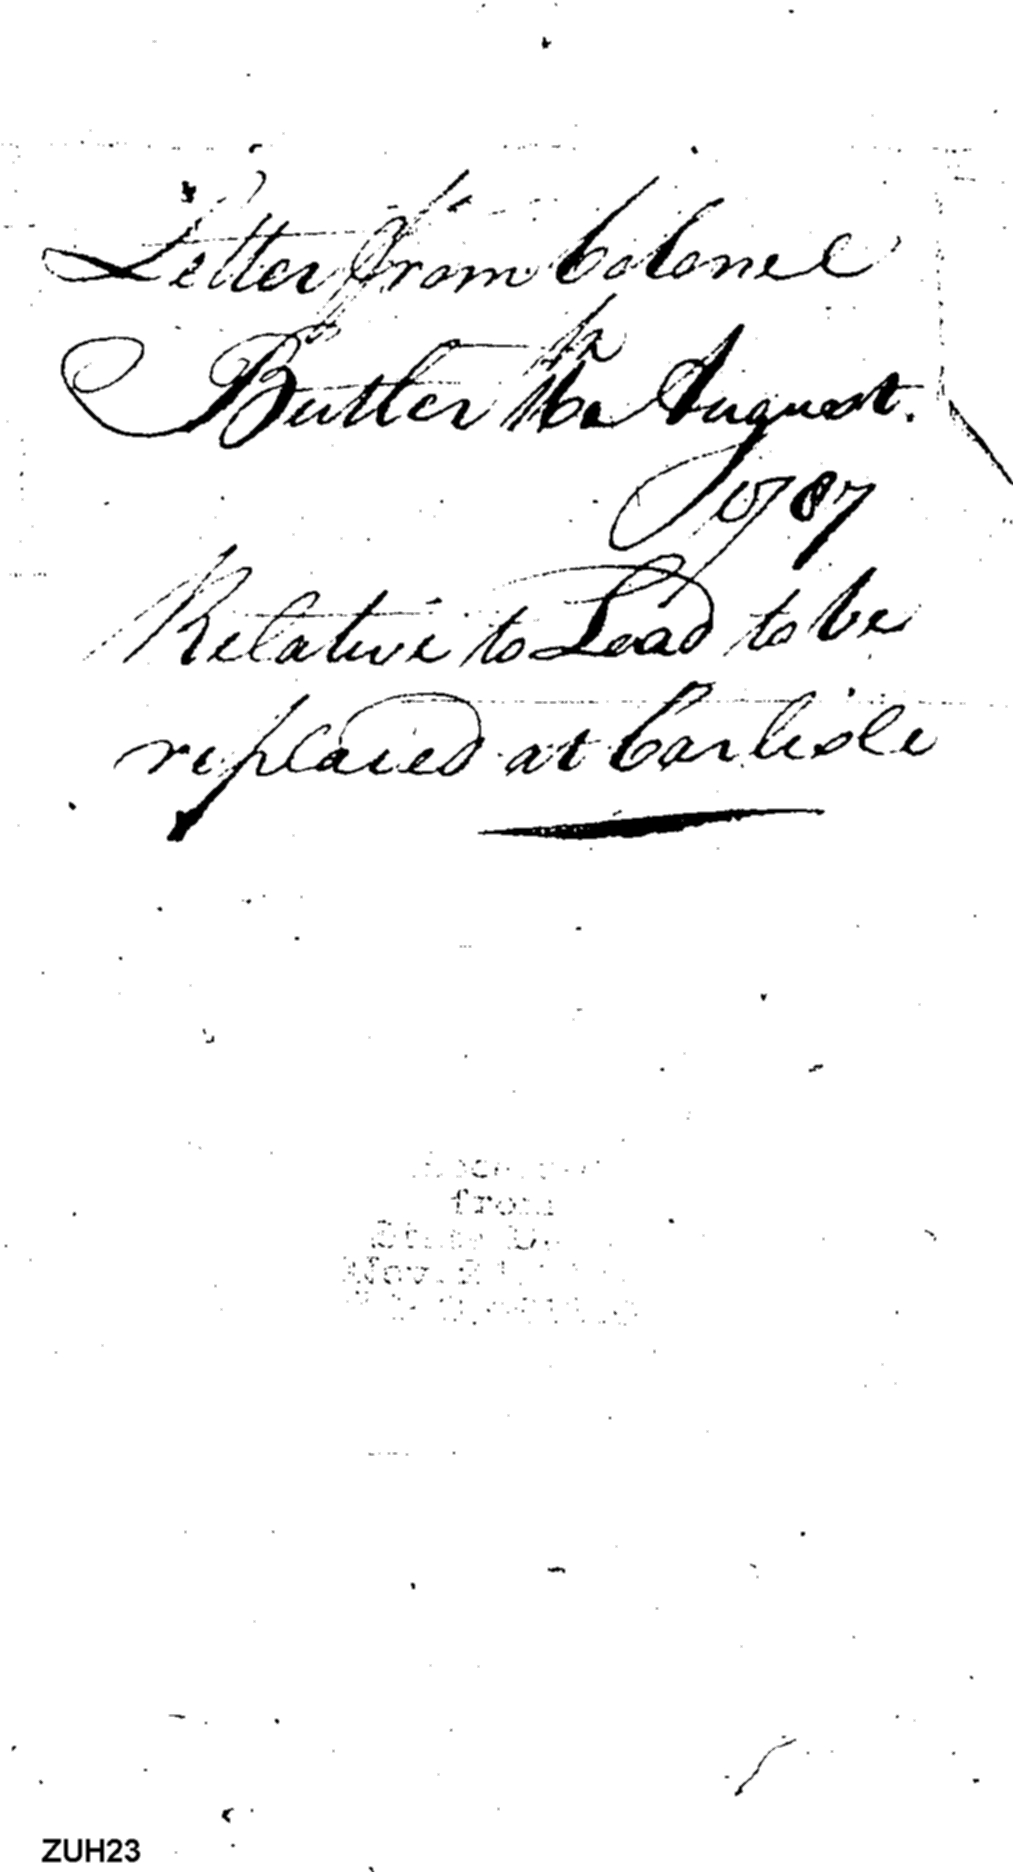 Letter from Colonel
Butler 16th August.
1787
Relative to Lead to be
replaced at Carlisle
from
Nov. 2
ZUH23